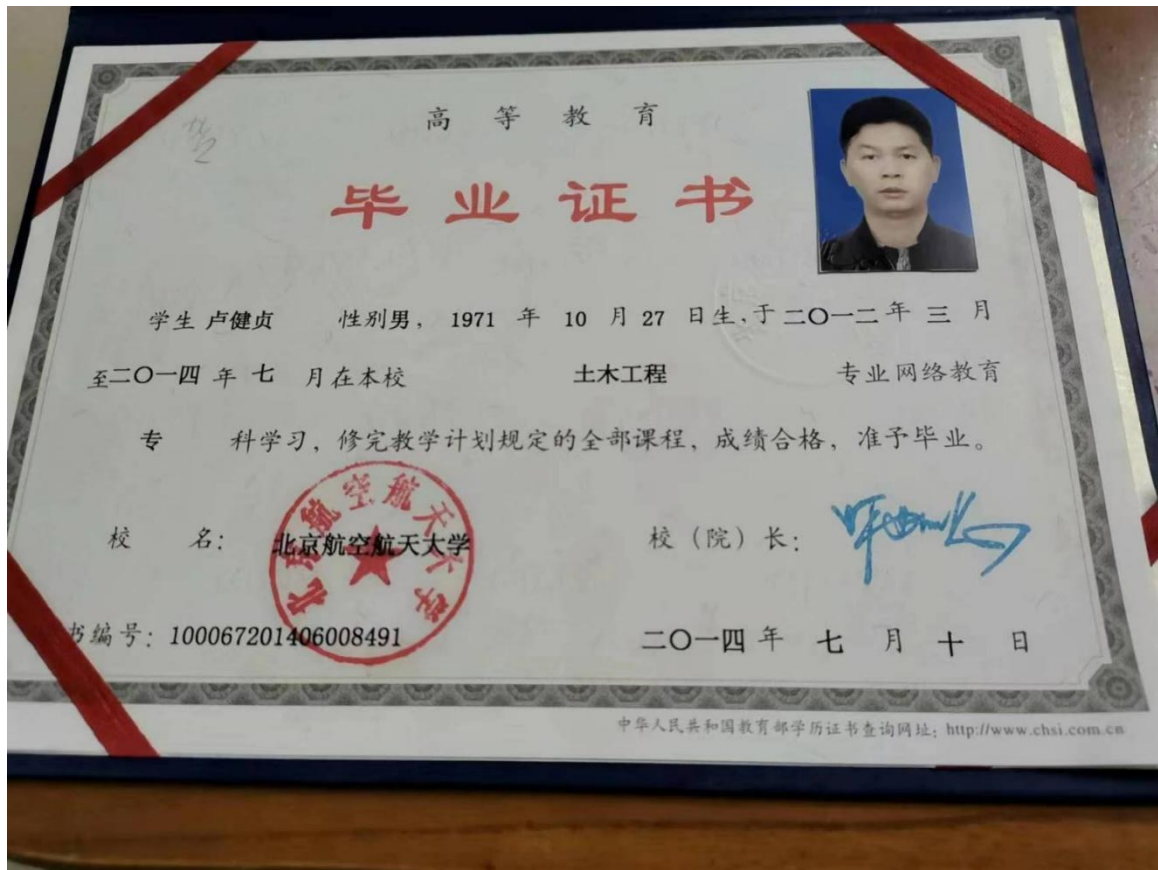 高等教育
毕业证书
学生 卢健贞 性别男，1971 年 10 月 27 日生，于二〇一二年 三 月
至二〇一四 年 七 月在本校 土木工程 专业网络教育
专 科学习，修完教学计划规定的全部课程，成绩合格，准予毕业。
校 名： 北京航空航天大学
北京航空航天大学
校（院）长：
书编号：100067201406008491
二〇一四 年 七 月 十 日
中华人民共和国教育部学历证书查询网址：http://www.chsi.com.cn